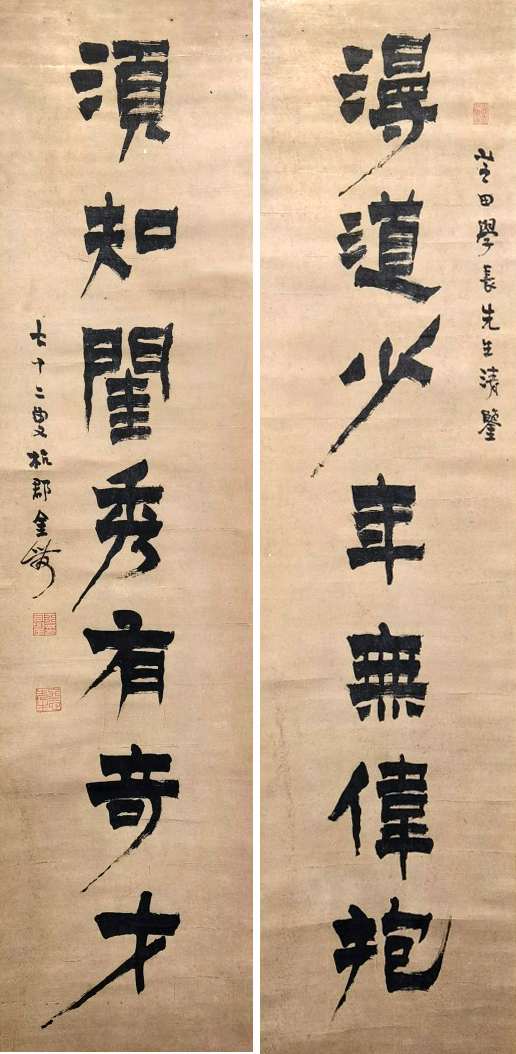 漫道少年無偉抱
堂田學長先生清鑒
須知閨秀有奇才
七十二叟杭郡金農